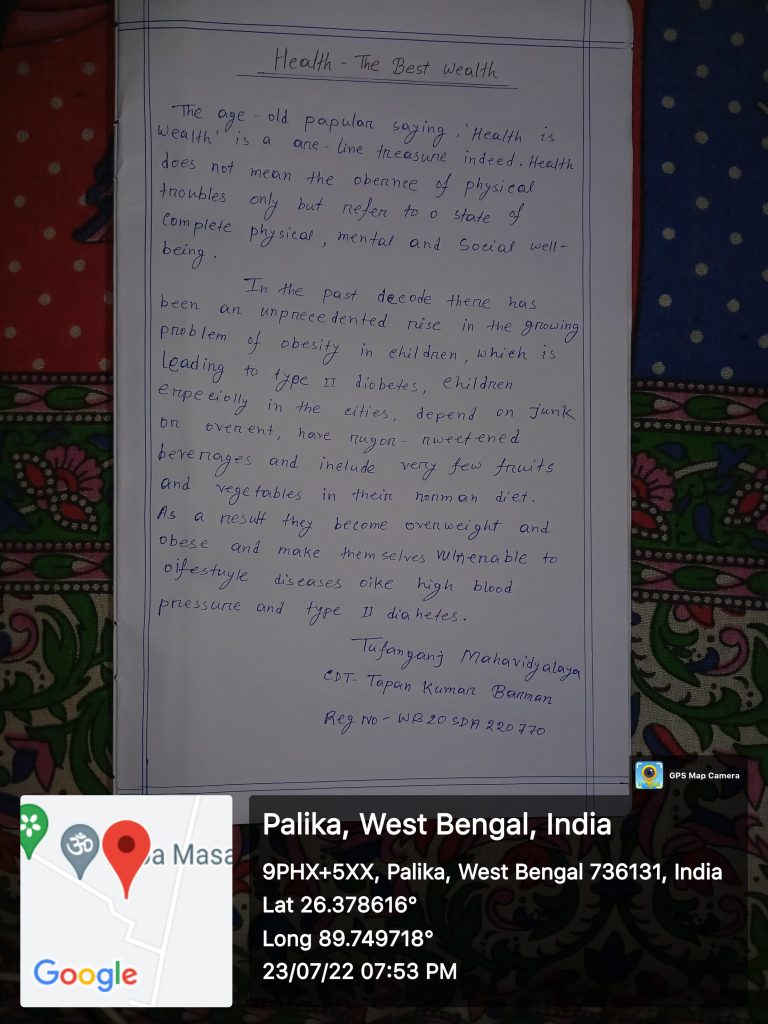 Health - The Best Wealth
The age-old papular saying, 'Health is
Wealth' is a one-line treasure indeed. Health
does not mean the obernee of physical
troubles only but refer to o state of
Complete physical, mental and Social well-
being.
In the past decode there has
been an unprecedented rise in the growing
problem of obesity in children, which is
Leading to type II diobetes, children
erpeciolly in the cities, depend on junk
or overent, have rugor-rweetened
beverages and include very few fruits
and vegetables in their norman diet.
As a result they become overweight and
obese and make them selves vulnerable to
oifestuyle diseases oike high blood
pressure and type II diahetes.
Tufanganj Mahavidyalaya
CDT- Tapan Kumar Barman
Reg No - WB20SDA220770
GPS Map Camera
a Masa
Google
Palika, West Bengal, India
9PHX+5XX, Palika, West Bengal 736131, India
Lat 26.378616°
Long 89.749718°
23/07/22 07:53 PM